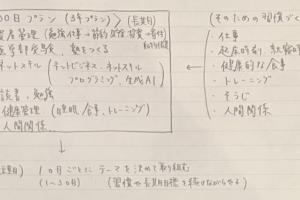 00日プラン (3年プラン) (長期)
資産管理 (勉強仕事→節約
熱をつくる
ネットスキル (ネットビジネス・ネットスキル
プログラミング、生成AI)
読書、勉強
健康管理 (睡眠/食事、トレーニング)
人間関係
(そのための習慣づく
・仕事
・起床時間
・健康的な食事
・トレーニング
・そうじ
・人間関係
1ヶ月ごとにテーマを決めて取り組む
(1~3ヶ月) (習慣や長期目標を続けながらやる)